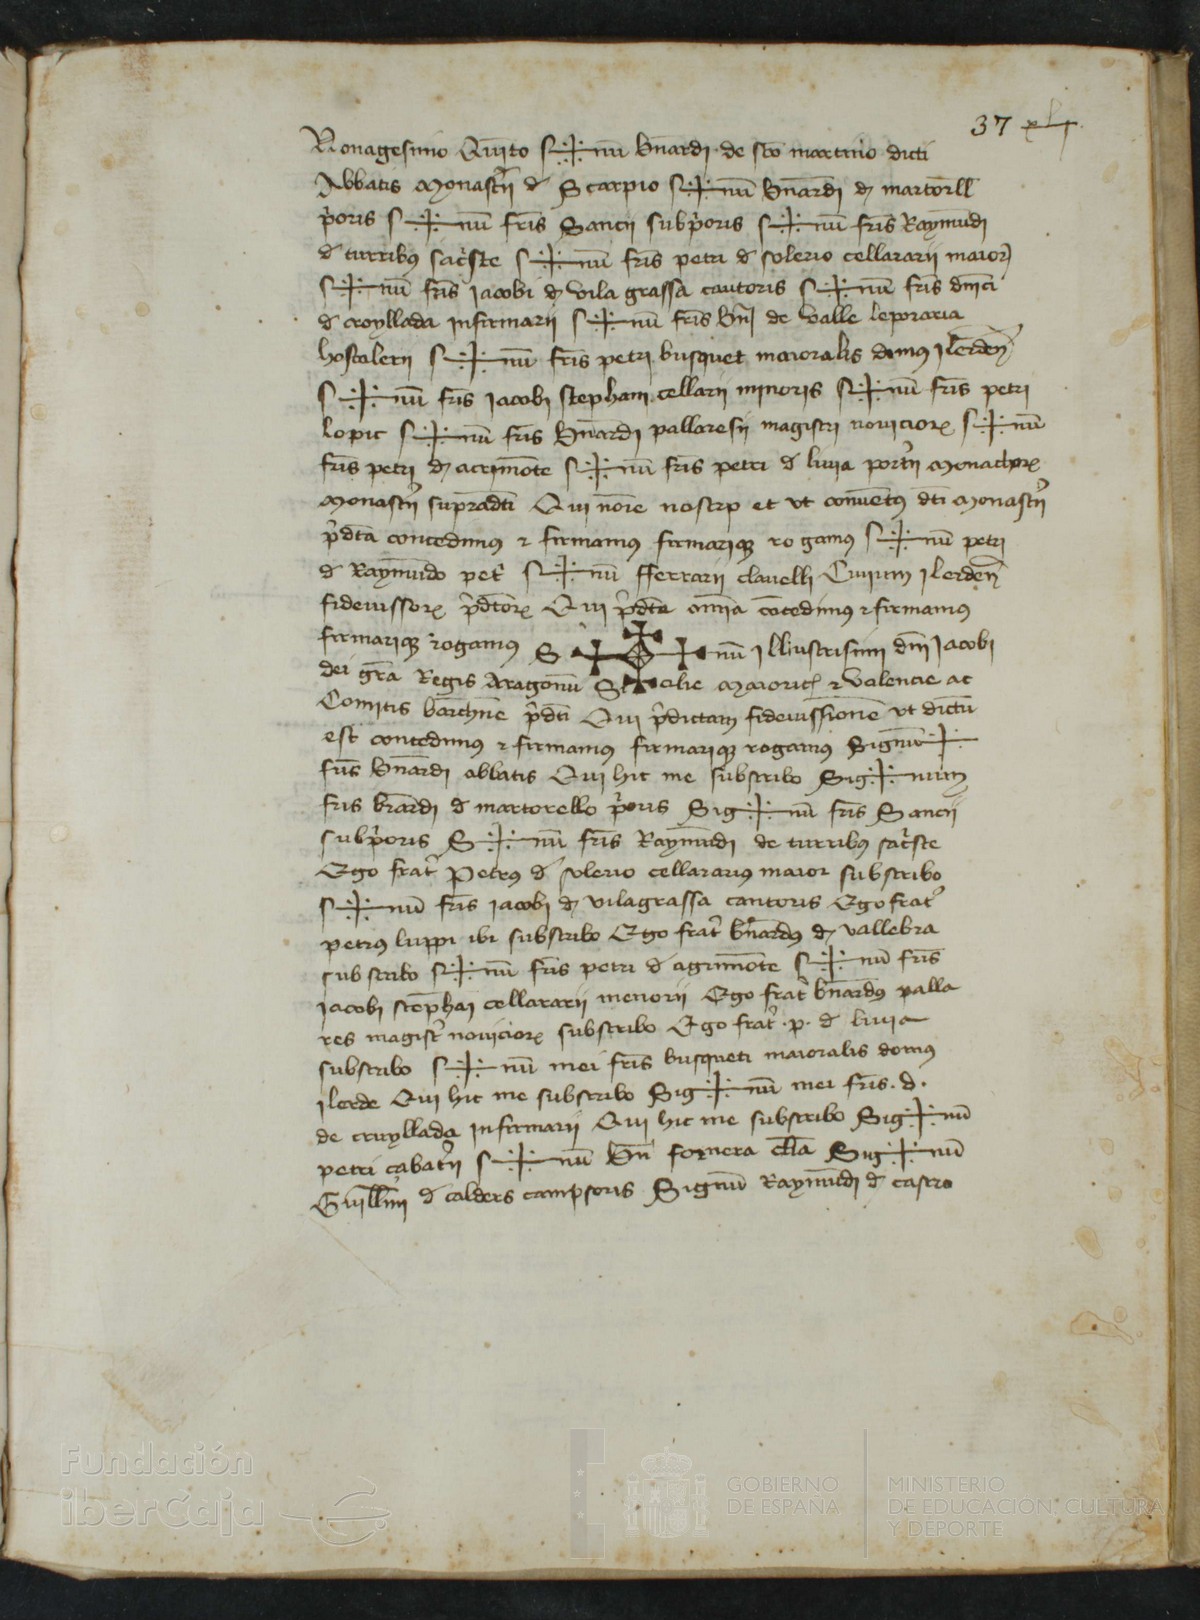 37 xlj
Nonagesimo Quīto S✠nū bn̄ardi de sc̄o martino dicti
Abbatis Monast̄ii d' Scarpio S✠nū bn̄ardi d' martorell
p̄oris S✠nū fr̄is Sancii subp̄oris S✠nū fr̄is Raymūdi
d' turribus sac̄ste S✠nū fr̄is petri d' solerio cellararii maior̄
S✠nū fr̄is Jacobi d' vila grassa cantoris S✠nū fr̄is dn̄ici
d' croyllada infirmarii S✠nū fr̄is bn̄j de valle leporaria
hostalerii S✠nū fr̄is petri busquet maioralis domus jlerdeñ
S✠nū fr̄is Jacobi stephani cellarii minoris S✠nū fr̄is petri
lopic S✠nū fr̄is bn̄ardi pallaresii magistri nouiciorꝝ S✠nū
fr̄is petri d' acrimōte S✠nū fr̄is petri d' liuia port̄ii Monachorꝝ
Monast̄ii supradc̄ti Qui nōie nostro et vt conuētus dc̄ti Monast̄ii
p̄dc̄ta concedimus ⁊ firmamus firmariqꝫ rogamus S✠nū petri
d' Raymūdo pet̄ S✠nū fferrarii clauelli Ciuium jlerdeñ
fideiussorꝝ p̄dc̄torꝝ Qui p̄dc̄ta om̄ia cōcedimus ⁊ firmamus
firmariqꝫ rogamus S✠nū jllustrisimi dn̄i Jacobi
dei gr̄a Regis Aragonū Sicilie Maioric̄ ⁊ valencie ac
Comitis barchn̄e p̄dc̄ti Qui p̄dictam fideiussionē vt dictū
est concedimus ⁊ firmamus firmariqꝫ rogamus Signū✠
fr̄is bn̄ardi abbatis Qui hic me subscribo Sig✠num
fr̄is br̄ardi d' martorello p̄oris Sig✠nū fr̄is Sancii
subp̄oris S✠nū fr̄is Raymūdi de turribus sac̄ste
Ego frat̄ Petrus d' solerio cellararius maior subscribo
S✠nū fr̄is Jacobi d' vilagrassa cantoris Ego frat̄
petrus luppi ibi subscribo Ego frat̄ bn̄ardus d' vallebra
subscribo S✠nū fr̄is petri d' agrimōte S✠nū fr̄is
Jacobi stēphai cellararii menorii Ego frat̄ bn̄ardus palla
res magist̄ nouiciorꝝ subscribo Ego frat̄ .p. d' liuia
subscribo S✠nū mei fr̄is busqueti maioralis domus
jlerde Qui hic me subscribo Sig✠nū mei fr̄is .d.
de cruyllada infirmarii Qui hic me subscribo Sig✠nū
petri çabat̄ii S✠nū bn̄ fornera Sig✠nū
Guill̄mi d' calders campsoris Signū Raymūdi d' castro
Fundación
iberCaja
GOBIERNO
DE ESPAÑA
MINISTERIO
DE EDUCACIÓN, CULTURA
Y DEPORTE